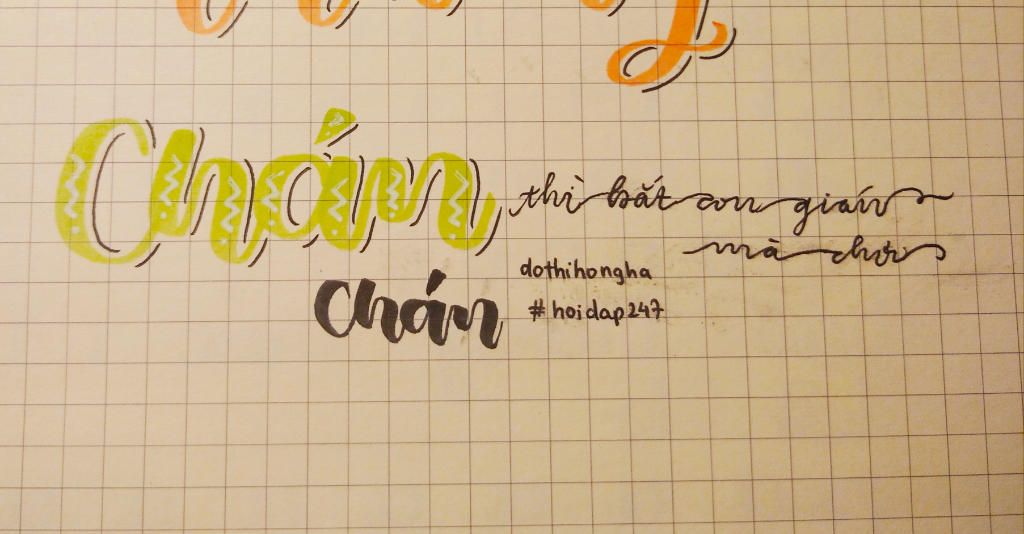 Chán thì bắt con gián
mà chơi
chán
dothihongha
#hoidap247